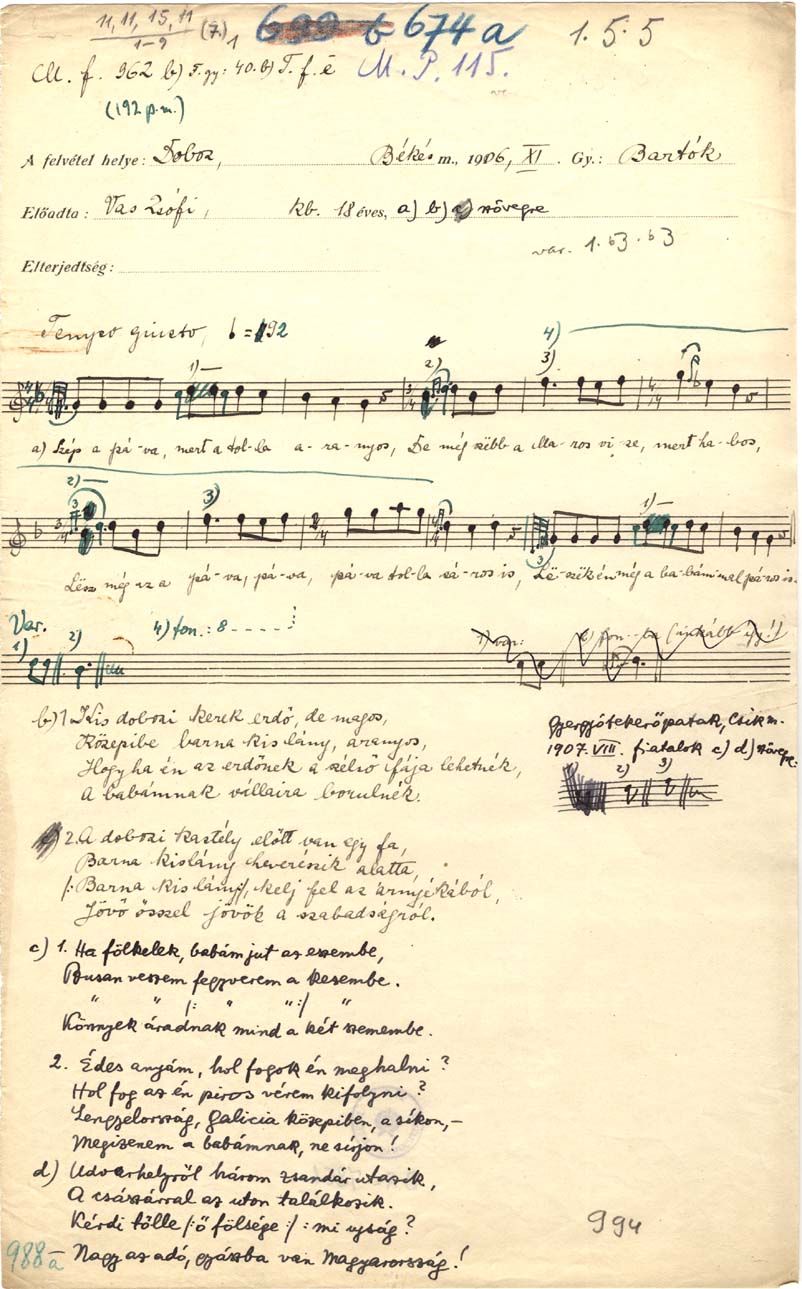 11, 11, 15, 11 (7.) 1 674a 1.5.5
1-9
M. f. 962 b) F. gy: 40. b) T. f. é M. P. 115.
(192 p.m.)
A felvétel helye: Doboz, Békés m., 1906, XI. Gy.: Bartók
Előadta: Vas Zsófi, kb. 18 éves, a) b) szövegre
var. 1.63.63
Elterjedtség:
Tempo giusto, = 192
4)
1) 2) 3)
a) Szép a pá-va, mert a tol-la a-ra-nyos, De még szebb a Ma-ros vi-ze, mert ha-bos,
2) 3) 1)
Lész még az a pá-va, pá-va, pá-va tol-la sá-ros is, Lë-szëk én még a ba-bám-mal pá-ros is.
Var. 4) fon.: 8
1) 2) 1) var:
b) 1. Kis dobozi kerek erdő, de magos,
Közepibe barna kislány, aranyos,
Hogyha én az erdőnek a szélső fája lehetnék,
A babámnak vállaira borulnék.
Gyergyótekerőpatak, Csik m.
1907. VIII. fiatalok c) d) szövegre:
2) 3)
2. A dobozi kastély előtt van egy fa,
Barna kislány heverészik alatta,
/: Barna kislány :/, kelj fel az árnyékából,
Jövő ősszel jövök a szabadságról.
c) 1. Ha fölkelek, babám jut az eszembe,
Busan veszem fegyverem a kezembe.
" " /: " " :/ "
Könnyek áradnak mind a két szemembe.
2. Édes anyám, hol fogok én meghalni?
Hol fog az én piros vérem kifolyni?
Lengyelország, Galicia közepiben, a síkon,–
Megizenem a babámnak, ne sírjon!
d) Udvarhelyről három zsandár utazik,
A császárral az uton találkozik.
Kérdi tőlle /: ő fölsége :/ : mi ujság?
Nagy az adó, gyászba van Magyarország!
994
988a